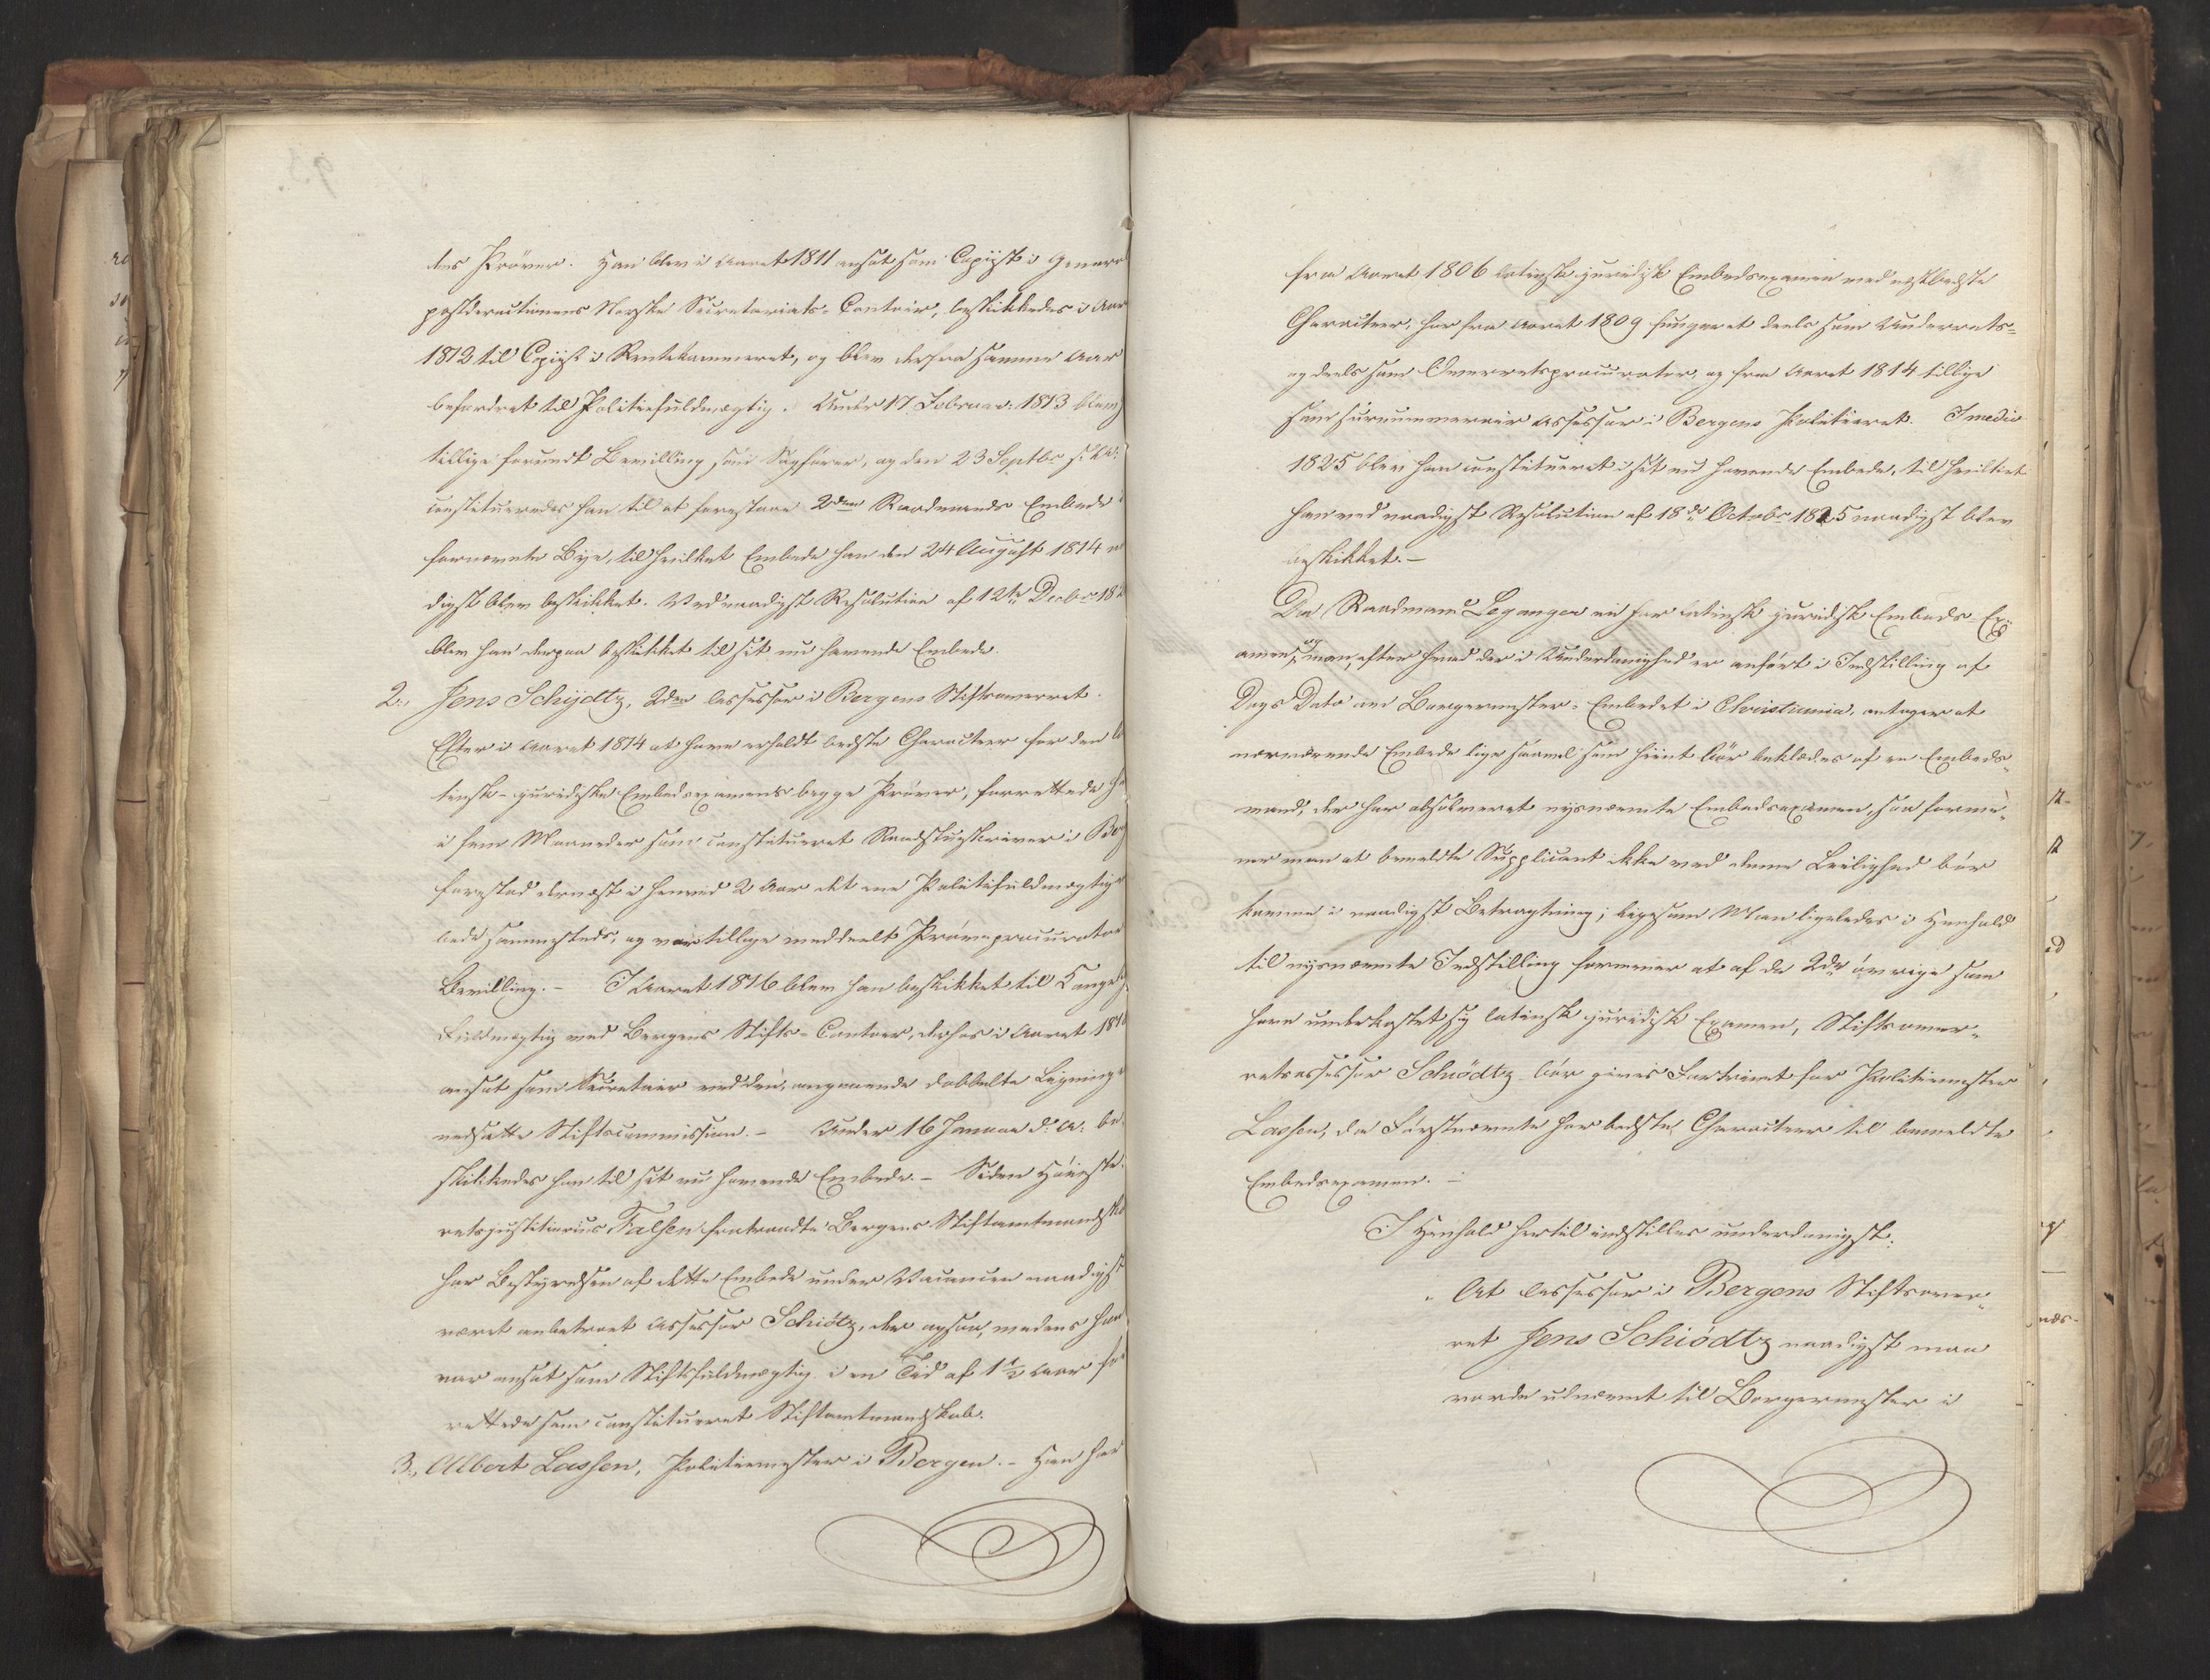 des Prøver. Han blev i Aaret 1811 ansat som Copiist i General
postdirectionens Norske Secretariats-Contoir, beskikkedes i Aar
1812 til Copiist i Rentekammeret, og blev derfra samme Aar
befordret til Politiefuldmægtig. Under 17 Februar 1813 blev
tillige forundt Bevilling som Sagfører, og den 23 Septbr s. A.
constitueredes han til at forestaae 2den Raadmands Embede i
fornævnte Bye, til hvilket Embede han den 24 August 1814 naa
digst blev beskikket. Ved naadigst Resolution af 12te Decbr 18
blev han derpaa beskikket til sit nu havende Embede.
2., Jens Schydtz, 2den Assessor i Bergens Stiftsoverret.
Efter i Aaret 1814 at have erholdt bedste Characteer for den la
tinsk-juridiske Embedsexamens begge Prøver, forrettede ha
i fem Maaneder som constitueret Raadstueskriver i Ber
forestod dernæst i henved 2 Aar det ene Politiefuldmægtige
bede sammesteds, og var tillige meddeelt Prøveprocurator
Bevilling. - I Aaret 1816 blev han beskikket til
Fuldmægtig ved Bergens Stifts-Contoir, derhos i Aaret 181
ansat som Secretair ved den, angaaende dobbelte Ligninger
nedsatte Stiftscommission. - Under 16 Januar d. A. be
skikkedes han til sit nu havende Embede. - Siden Høieste
retsjustitiarius Falsen fratraadte Bergens Stiftamtmandskab
har Bestyrelsen af dette Embede under Vacancen naadigst
været anbetroet Assessor Schiøtz, der ogsaa, medens han
var ansat som Stiftsfuldmægtig i en Tid af 1½ Aar for
rettede som constitueret Stiftamtmandskab.
3., Albert Lassen, Politiemester i Bergen. - Han har
fra Aaret 1806 latinsk juridisk Embedsexamen med næstbedste
Characteer, har fra Aaret 1809 fungeret deels som Underrets-
og deels som Overretsprocurator, og fra Aaret 1814 tillige
som surnummerair Assessor i Bergens Politieret. I medio
1825 blev han constitueret i sit nu havende Embede, til hvilket
han ved naadigst Resolution af 18de Octobr 1825 naadigst blev
beskikket. -
Da Raadmand Leganger ei har latinsk juridisk Embeds-Ex-
amen, og man, efter hvad der i Underdanighed er anført i Indstilling af
Dags Dato om Borgermester-Embedet i Christiania, antager at
nærværende Embede lige saavel som hiint bør beklædes af en Embeds-
mand, der har absolveret nysnævnte Embedsexamen, saa formee-
ner man at bemeldte Supplicant ikke ved denne Leilighed bør
komme i naadigst Betragtning; ligesom Man ligeledes i Henhold
til nysnævnte Indstilling formener at af de 2de øvrige som
have underkastet sig latinsk juridisk Examen, Stiftsover-
retsassessor Schiødtz bør gives Fortrinet for Politiemester
Lassen, da Førstnævnte har bedste Characteer til bemeldte
Embedsexamen. -
I Henhold hertil indstilles underdanigst:
"At Assessor i Bergens Stiftsover-
ret Jens Schiødtz naadigst maa
vorde udnævnt til Borgermester i